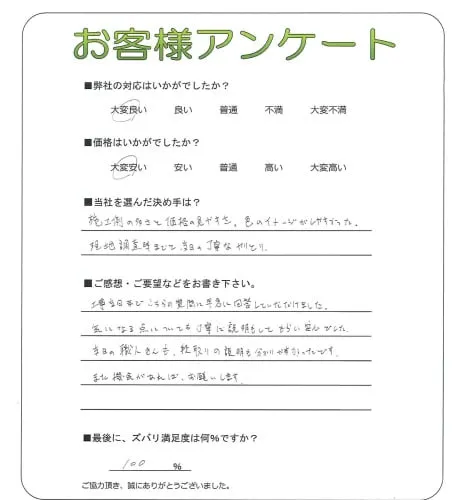 お客様アンケート
■弊社の対応はいかがでしたか？
大変良い 良い 普通 不満 大変不満
■価格はいかがでしたか？
大変安い 安い 普通 高い 大変高い
■当社を選んだ決め手は？
施工例の多さと価格の見やすさ、色のイメージがしやすかった。
現地調査時まで 当日の丁寧なやりとり。
■ご感想・ご要望などをお書き下さい。
工事当日までこちらの質問に早急に回答していただけました。
気になる点についても丁寧に説明もしてもらい安心でした。
当日の職人さんも、段取りの説明も分かりやすかったです。
また機会があれば、お願いします。
■最後に、ズバリ満足度は何％ですか？
100 ％
ご協力頂き、誠にありがとうございました。